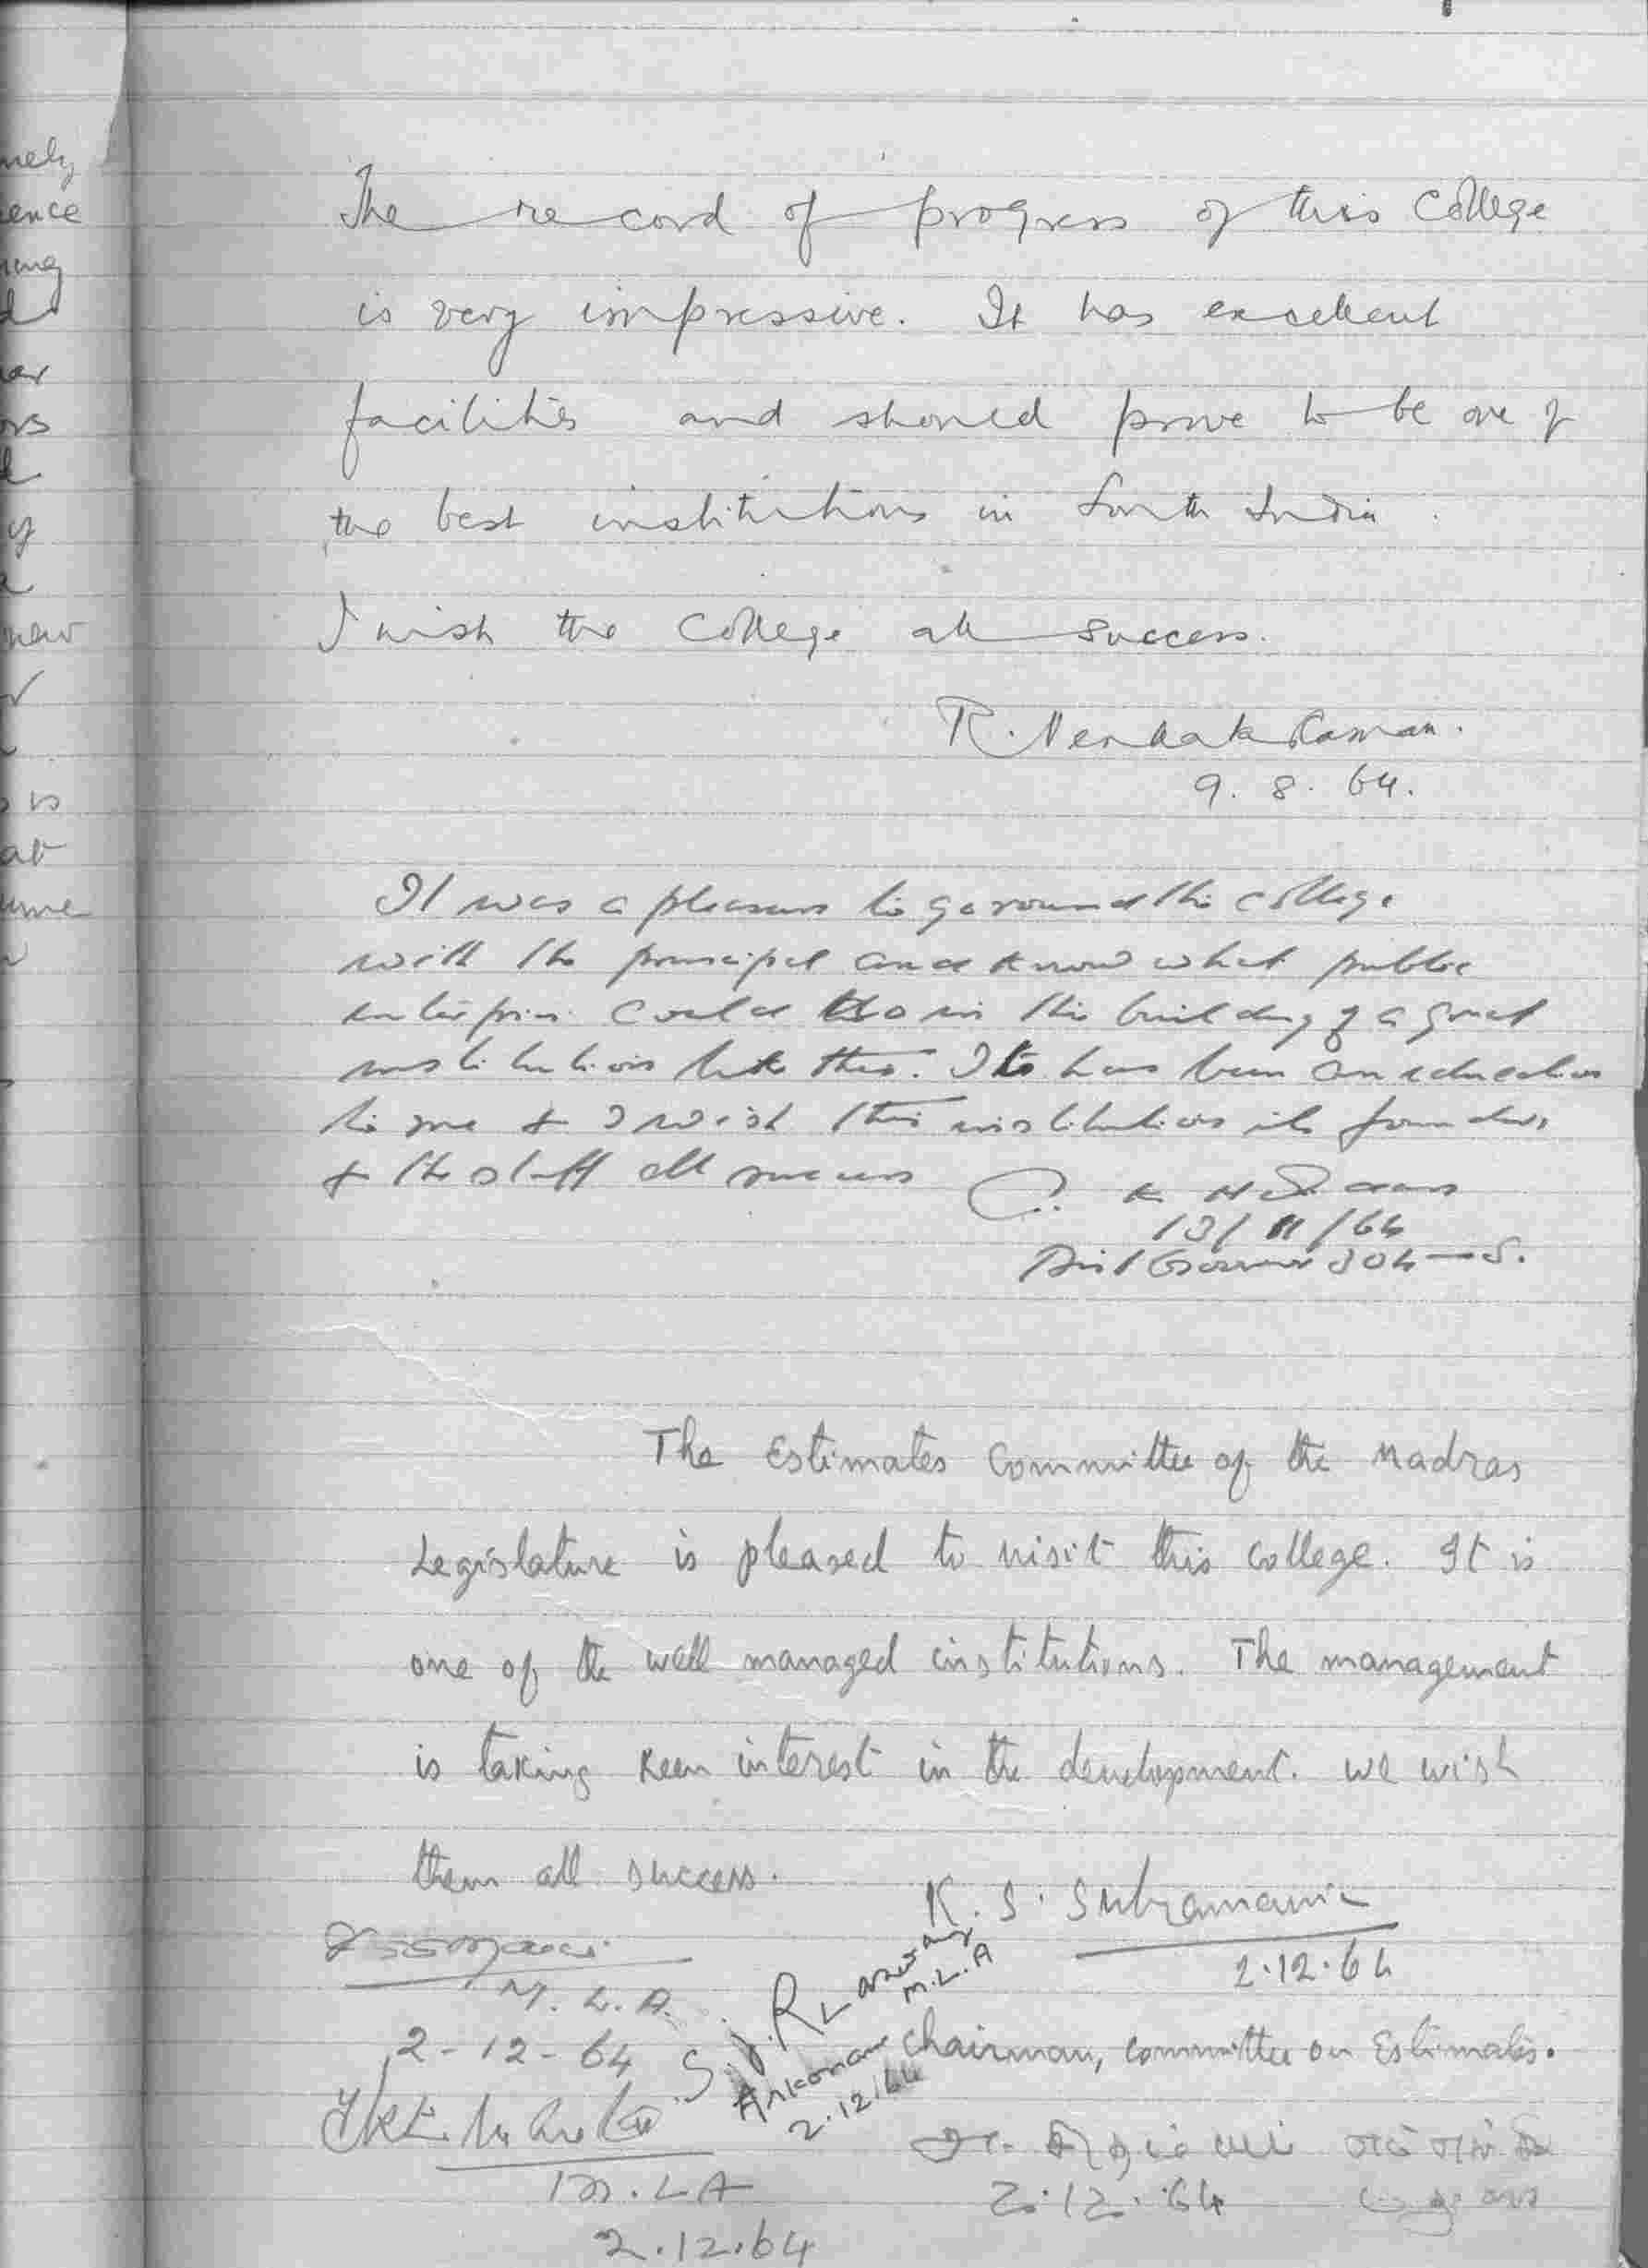 nely
ence
ar
ors
y
new
is
at
ume
The record of progress of this College
is very impressive. It has excellent
facilities and should prove to be one of
the best institutions in South India.
I wish the College all success.
R. Venkataraman.
9. 8. 64.
It was a pleasure to go round the college
with the principal and know what public
enterprise could do in the building of a great
institution like this. It has been an education
to me & I wish this institution its founders
& the staff all success
13/11/64
Dist Governor 304 — S.
The Estimates Committee of the Madras
Legislature is pleased to visit this college. It is
one of the well managed institutions. The management
is taking keen interest in the development. We wish
them all success.
K. S. Subramania
2.12.64
M.L.A.
2-12-64
S.J.R
M.L.A
Arkonam
2.12/64
Chairman, Committee on Estimates.
M.L.A
2.12.64
2.12.64